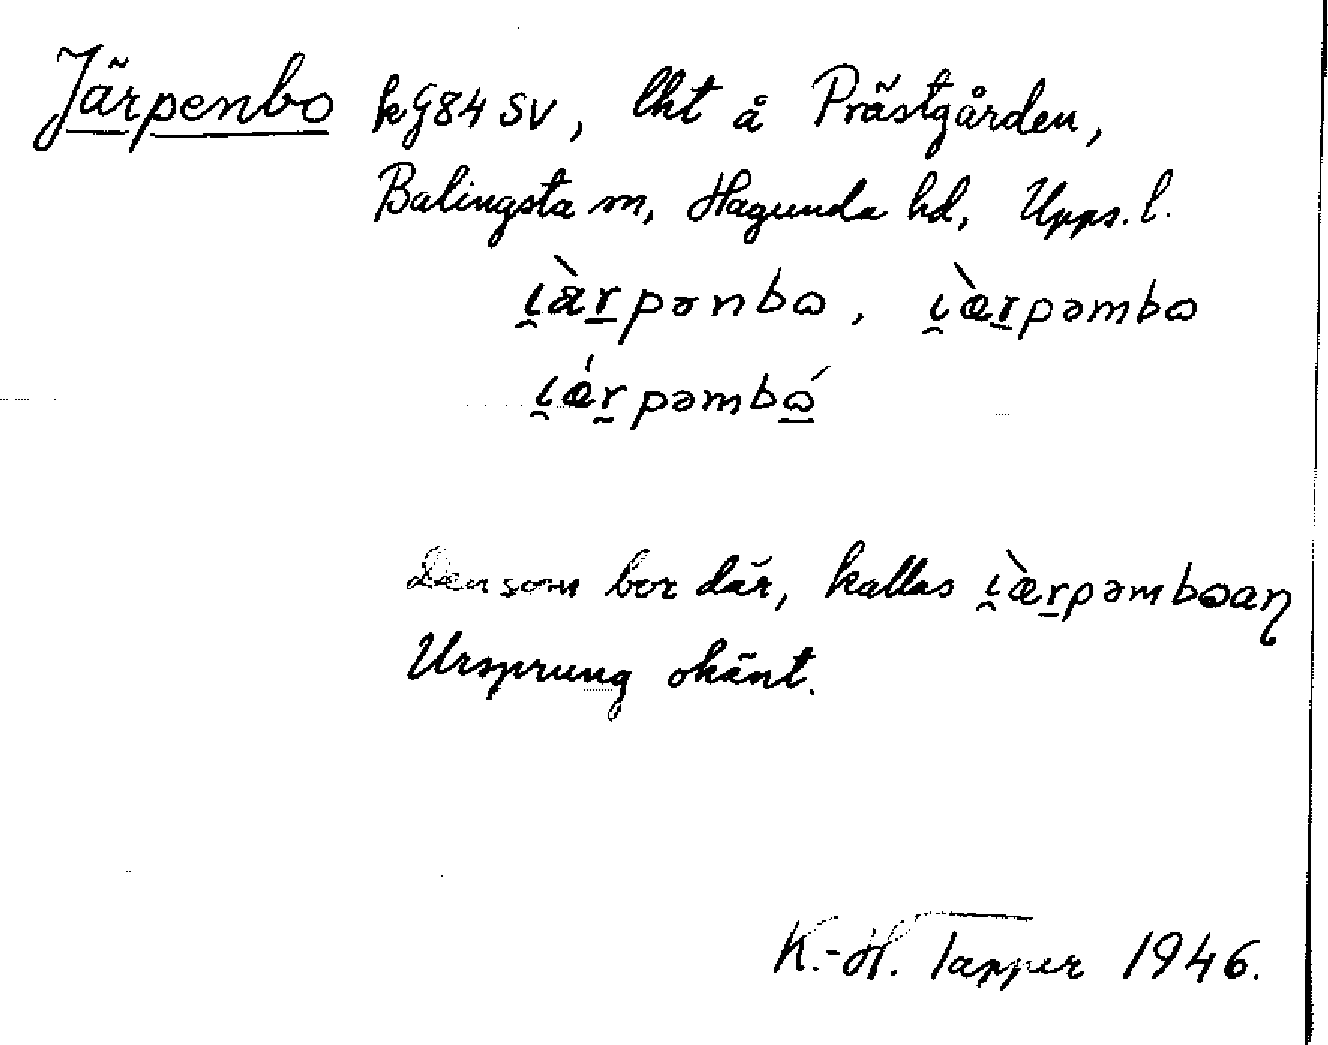 Järpenbo kG84 SV, lht å Prästgården,
Balingsta sn, Hagunda hd, Upps. l.
ɩ̯ä̀r̠pənbɷ, ɩ̯æ̀r̠pəmbɷ
ɩ̯ǽr̠pəmbɷ̠́
Den som bor där, kallas ɩ̯æ̀r̠pəmbɷaɳ
Ursprung okänt.
K.-H. Tapper 1946.